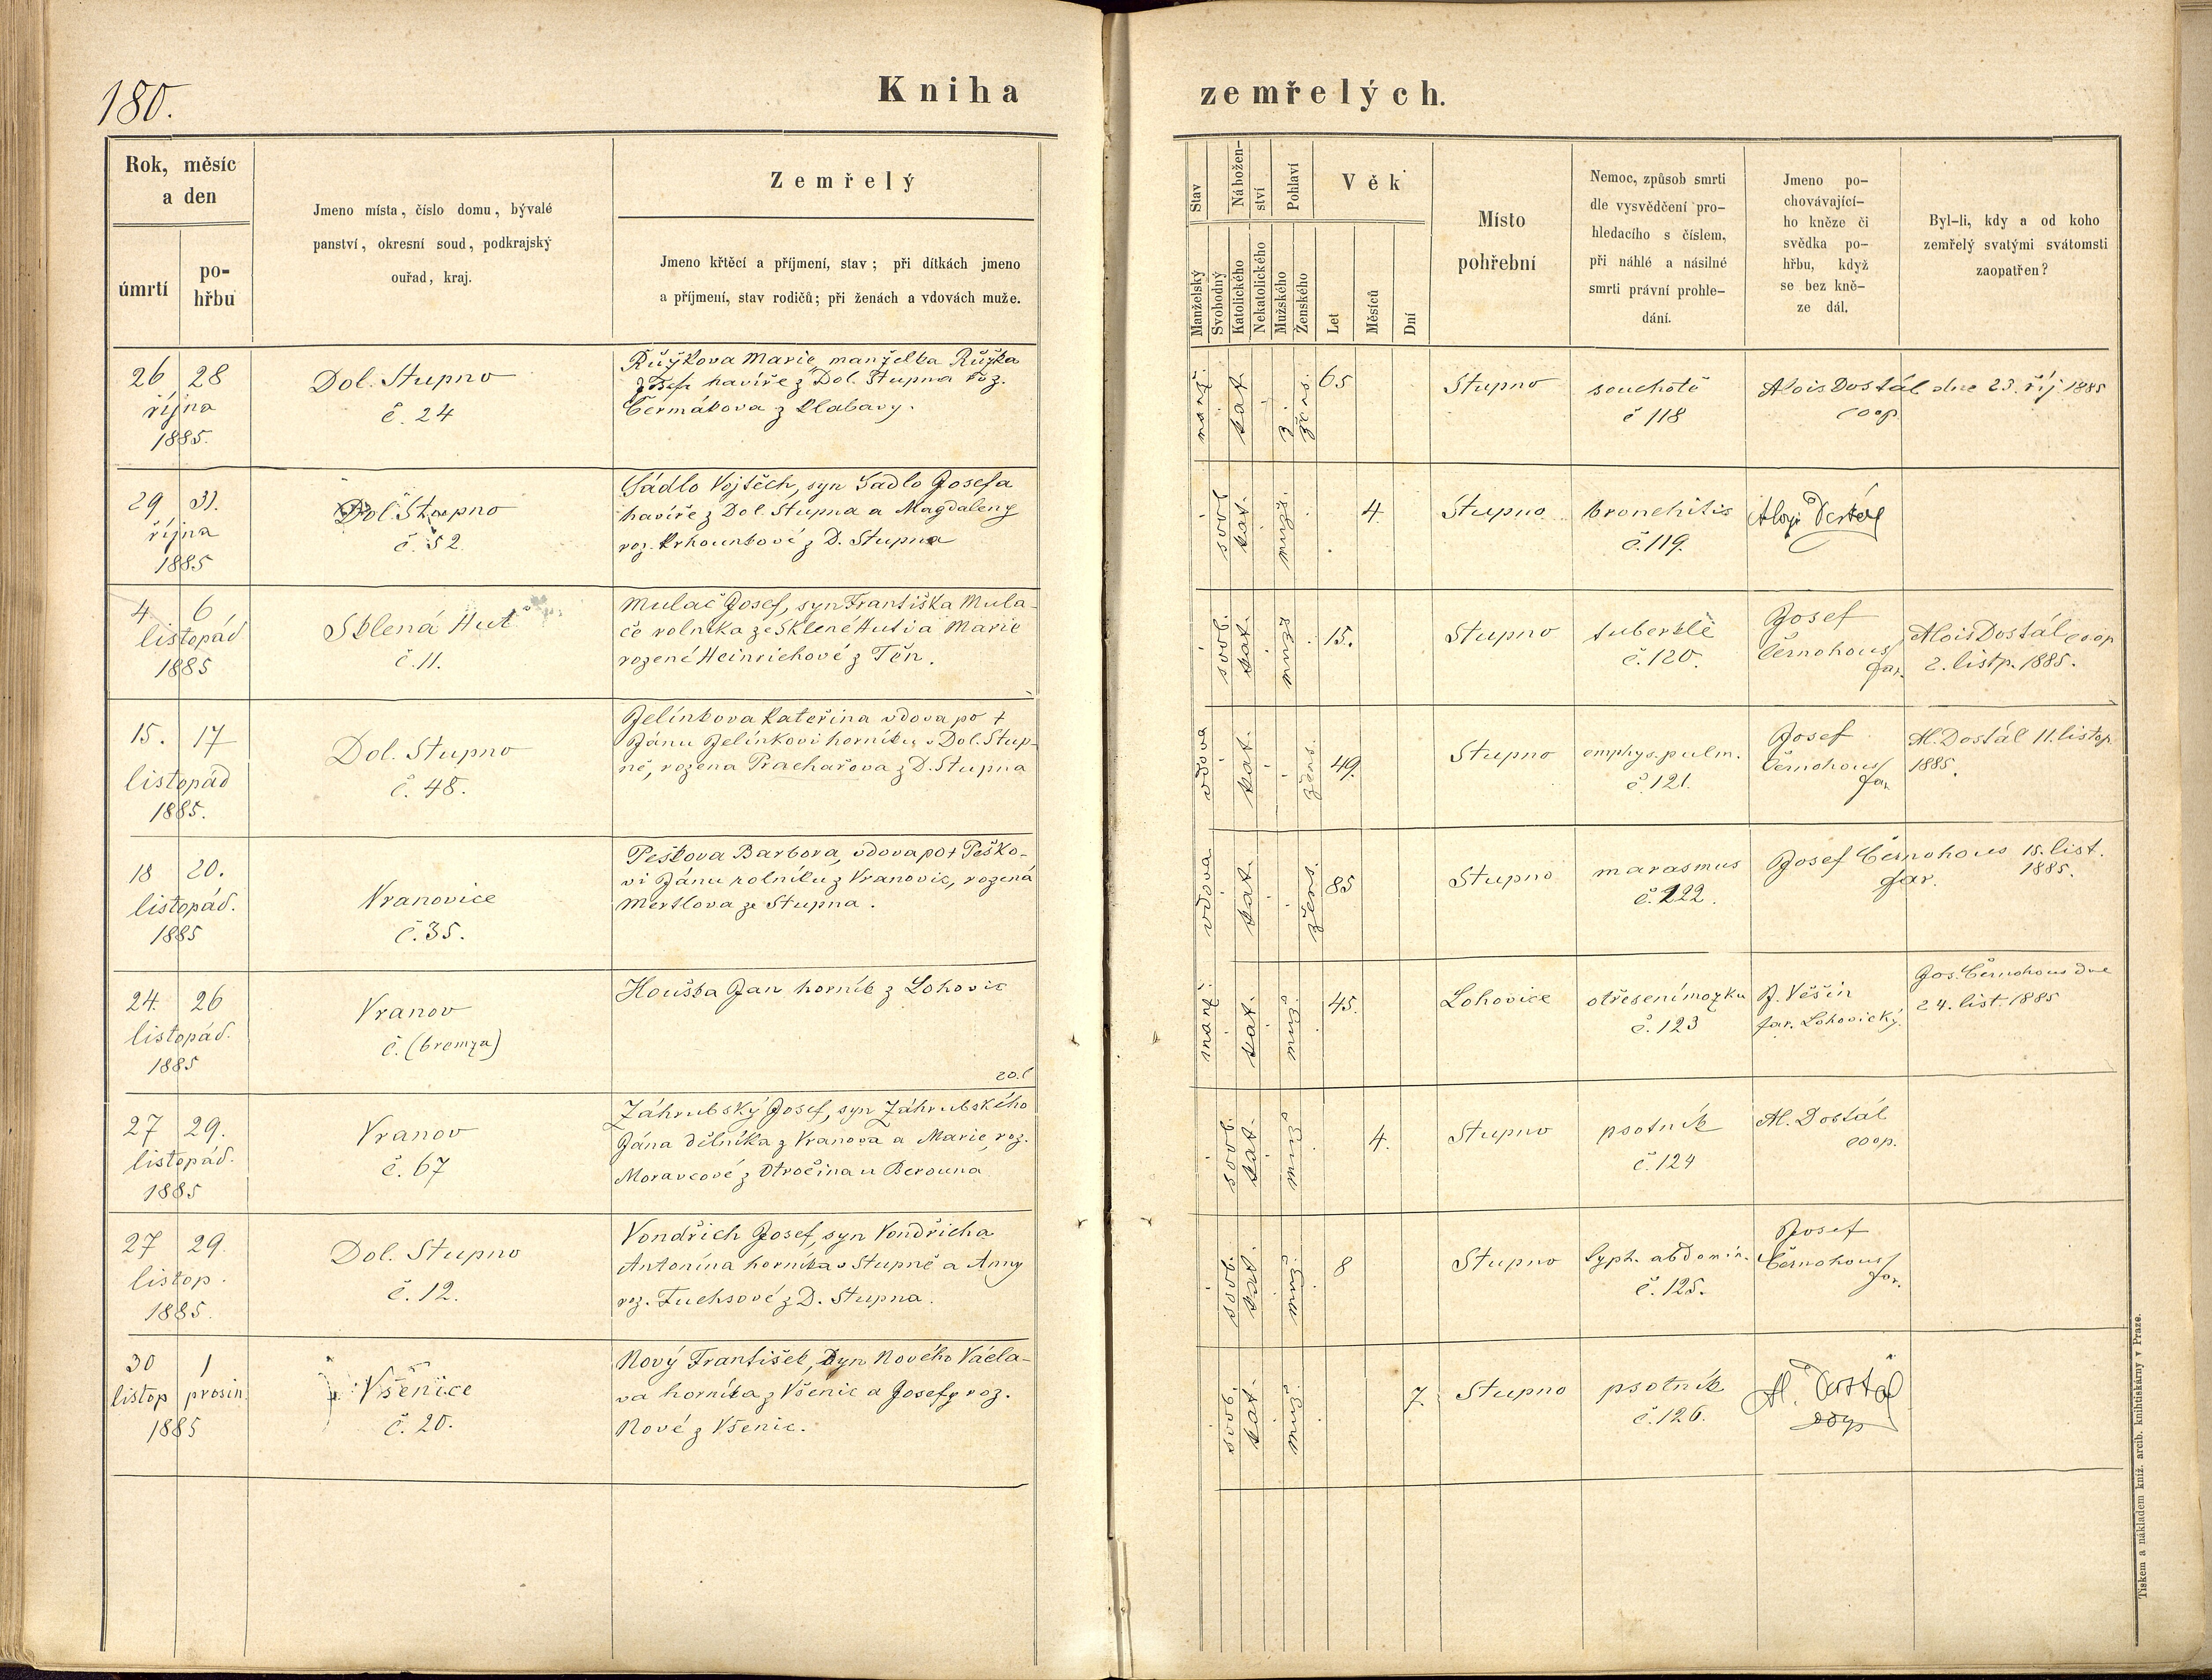 180.
Kniha zemřelých.
Rok, měsíc
a den
úmrtí
po-
hřbu
Jmeno místa, číslo domu, bývalé
panství, okresní soud, podkrajský
ouřad, kraj.
Zemřelý
Jmeno křtěcí a příjmení, stav; při dítkách jmeno
a příjmení, stav rodičů; při ženách a vdovách muže.
Stav
Manželský
Svobodný
Nábožen-
ství
Katolického
Nekatolického
Pohlaví
Mužského
Ženského
Věk
Let
Měsíců
Dní
Místo
pohřební
Nemoc, způsob smrti
dle vysvědčení pro-
hledacího s číslem,
při náhlé a násilné
smrti právní prohle-
dání.
Jmeno po-
chovávající-
ho kněze či
svědka po-
hřbu, když
se bez kně-
ze dál.
Byl-li, kdy a od koho
zemřelý svatými svátomsti
zaopatřen?
26 28
října
1885.
Dol. Stupno
č. 24
Růžkova Marie, manželka Růžka
havíře z Dol. Stupna roz.
Čermákova z Klabavy.
manž.
kat.
žens.
65
Stupno
souchotě
č 118
Alois Dostál
coop.
dne 23. říj 1885
29 31.
října
1885
Dol. Stupno
č. 52
Sádlo Vojtěch, syn Sadlo Josefa
havíře z Dol. Stupna a Magdaleny
roz. z D. Stupna
svob.
kat.
mužs.
4.
Stupno
bronchitis
č. 119.
Aloys Dostál
4 6
listopád
1885
Sklená Huť
č. 11.
Mulač Josef, syn Františka Mula-
če rolníka ze Sklené Huti a Marie
rozené Heinrichové z Těn.
svob.
kat.
mužs
15.
Stupno
tuberklě
č. 120.
Josef
Černohous
far.
Alois Dostál coop
2. listp. 1885.
15. 17
listopád
1885.
Dol. Stupno
č. 48.
Jelínkova Kateřina vdova po †
Jánu Jelínkovi horníku v Dol. Stup-
ně, rozena Prachařova z D. Stupna
vdova
kat.
žens.
49.
Stupno
emphys. pulm.
č. 121.
Josef
Černohous
far.
Al. Dostál 11. listop.
1885.
18 20.
listopád.
1885
Vranovice
č. 35.
Peškova Barbora, vdova po † Peško-
vi Jánu rolníku z Vranovic, rozená
Mertlova ze Stupna.
vdova
kat.
žens.
85
Stupno
marasmus
č. 122.
Josef Černohous
far.
15. list.
1885.
24. 26
listopád.
1885
Vranov
č. (bremza)
Houška Jan horník z Lohovic
manž.
kat.
muž.
45.
Lohovice
otřesení mozku
č. 123
J. Věšín
far. Lohovický.
Jos. Černohous dne
24. list. 1885
27 29.
listopád.
1885
Vranov
č. 67
Záhrubský Josef, syn Záhrubského
Jána dělníka z Vranova a Marie, roz.
Moravcové z Otročina u Berouna
svob.
kat.
muž.
4.
Stupno
psotník
č. 124
Al. Dostál
coop.
27 29.
listop.
1885.
Dol. Stupno
č. 12.
Vondřich Josef, syn Vondřicha
Antonína horníka v Stupně a Anny
roz. Fuchsové z D. Stupna.
svob.
kat.
muž.
8
Stupno
typh. abdomin.
č. 125.
Josef
Černohous
far.
30 1
listop prosin.
1885
Všenice
č. 20.
Nový František, syn Nového Václa-
va horníka z Všenic a Josefy roz.
Nové z Všenic.
svob.
kat.
muž.
7.
Stupno
psotník
č. 126.
Al. Dostál
coop
Tiskem a nákladem kníž. arcib. knihtiskárny v Praze.